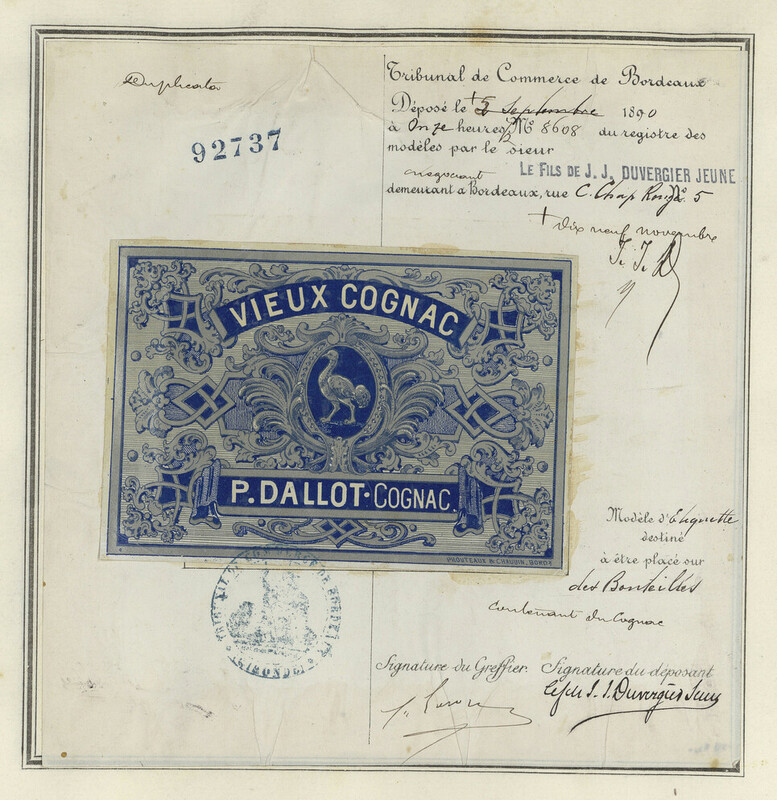 Duplicata
92737
Tribunal de Commerce de Bordeaux
Déposé le + 5 Septembre 1890
à Onze heures Nº 8608 du registre des
modèles par le sieur
LE FILS DE J. J. DUVERGIER JEUNE
negociant
demeurant à Bordeaux, rue C. Chap Rouge Nº 5
+ dix neuf novembre
J. J. D
VIEUX COGNAC
P. DALLOT · COGNAC.
PROUTEAUX & CHAUVIN, BORDX
Modèle d'Etiquette
destiné
à être placé sur
des Bouteilles
contenant du Cognac
TRIBUNAL DE COMMERCE DE BORDEAUX
(GIRONDE)
Signature du Greffier.
Signature du déposant
le fils J. J. Duvergier Jeune